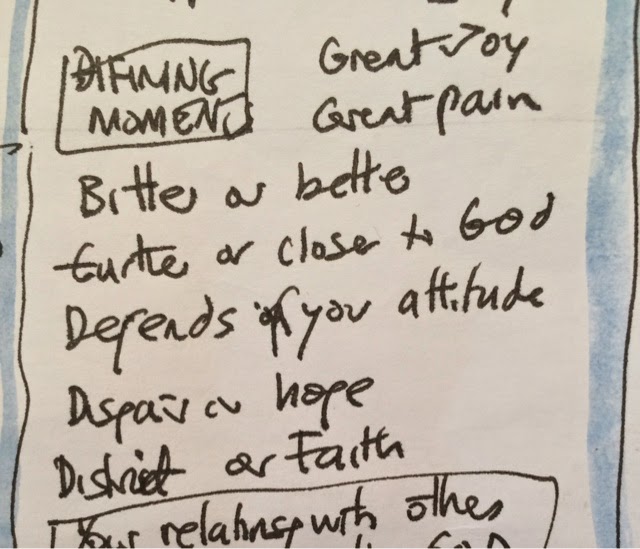 DIFINING
MOMENT
Great Joy
Great pain
Bitter or better
furthe or closer to God
Depends of your attitude
Dispair or hope
District or Faith
Your relationsp with others
GOD